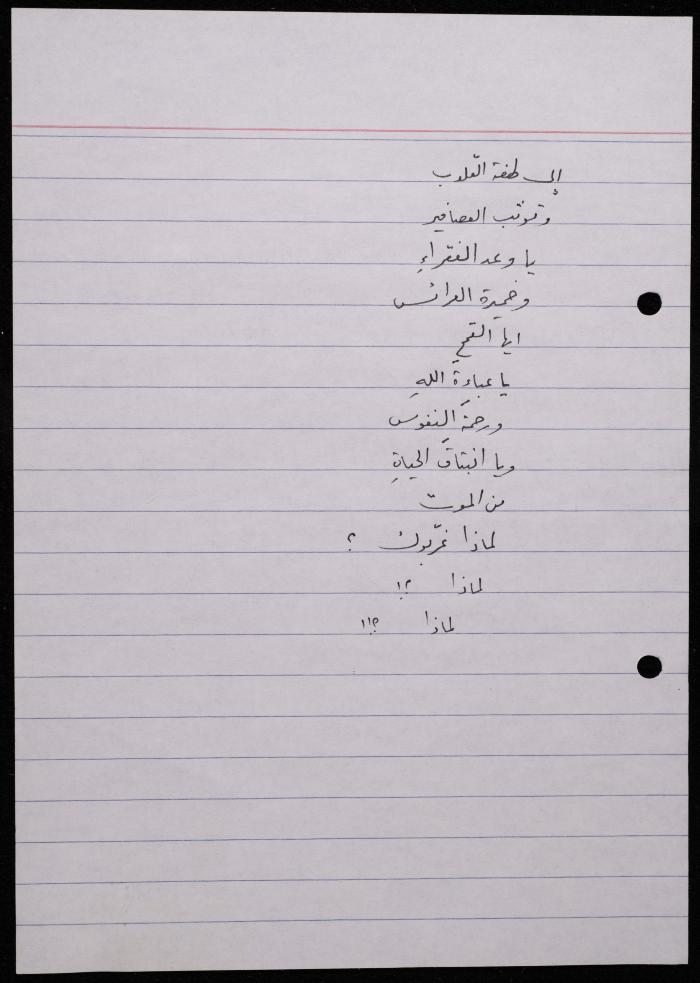 إلى لهفة القلوب
وتوثّب العصافير
يا وعد الفقراءِ
وخميرة العرائس
ايها القمح
يا عباءةَ اللهِ
ورحمةَ النفوس
ويا انبثاقَ الحياةِ
من الموت
لماذا غرّبوك ؟
لماذا ؟!
لماذا ؟!!